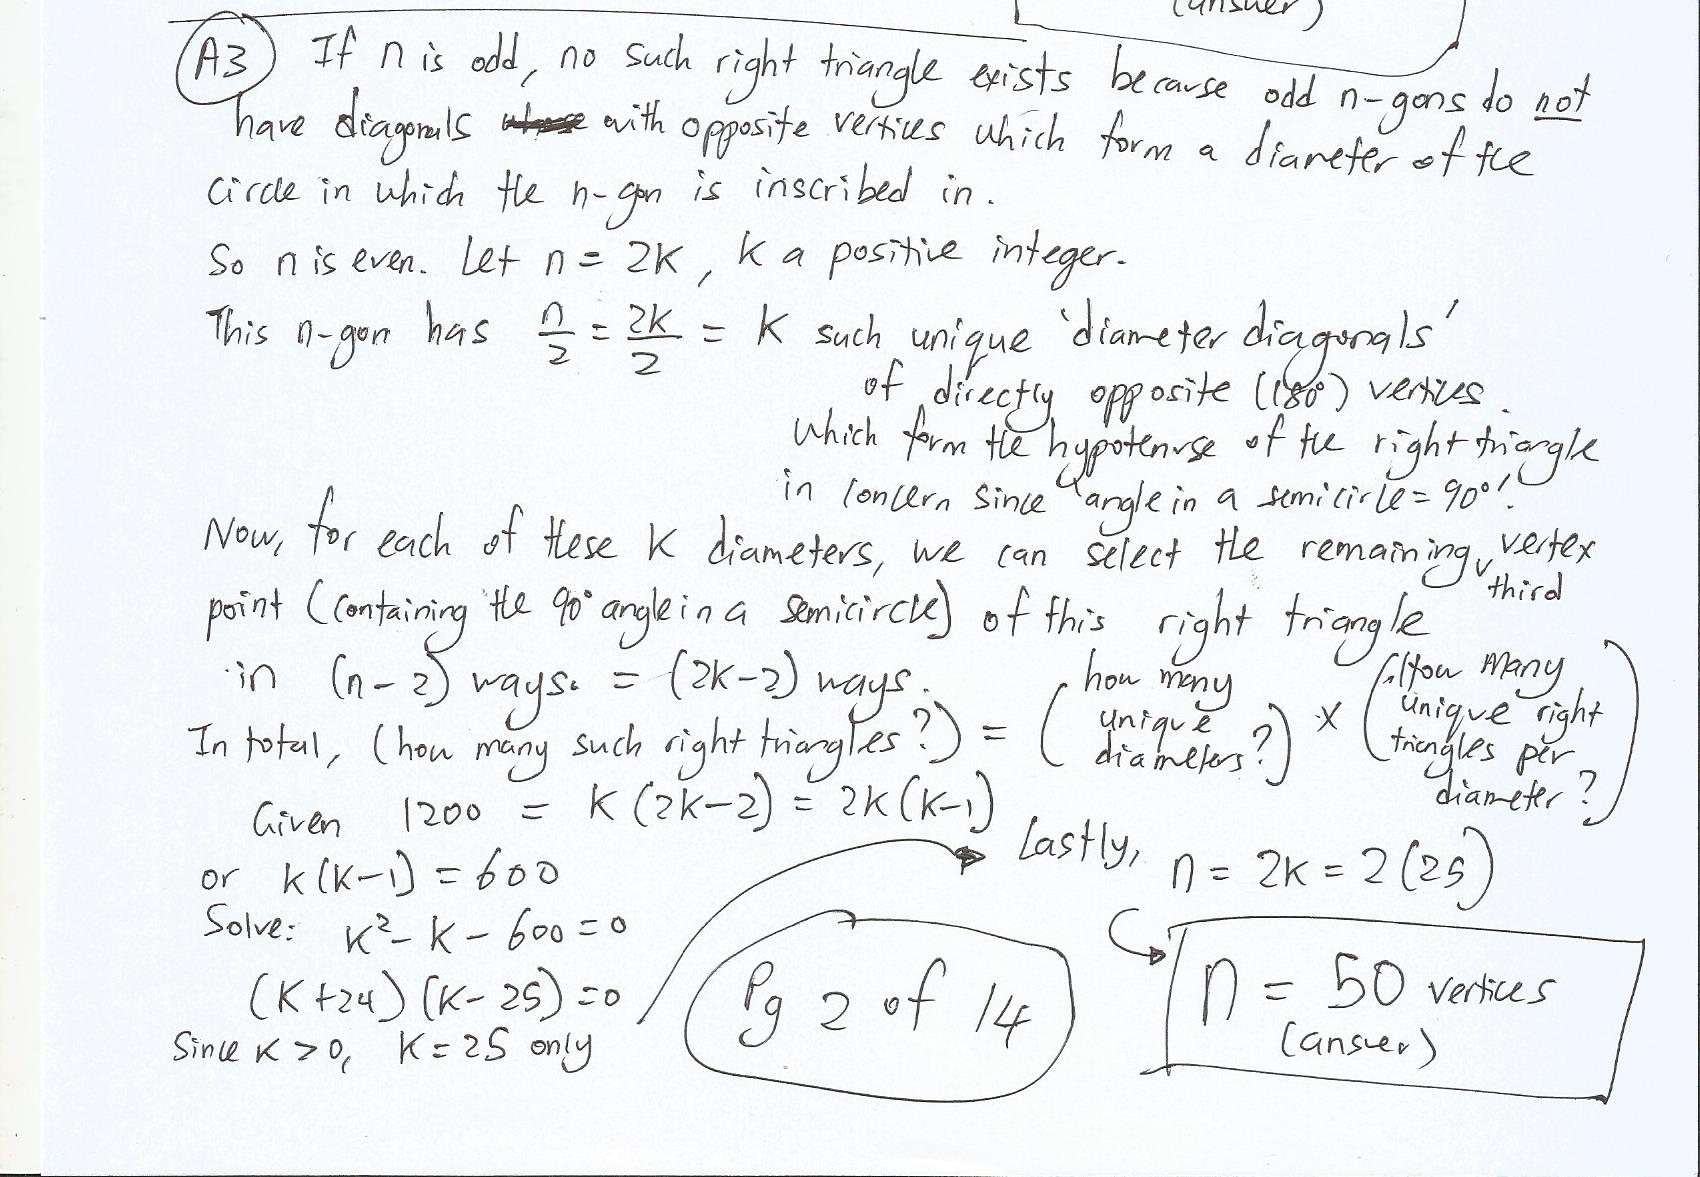 (answer)
A3 If n is odd, no such right triangle exists because odd n-gons do not
have diagonals with opposite vertices which form a diameter of the
circle in which the n-gon is inscribed in.
So n is even. Let n = 2K, K a positive integer.
This n-gon has n/2 = 2K/2 = K such unique 'diameter diagonals'
of directly opposite (180°) vertices.
which form the hypotenuse of the right triangle
in concern since 'angle in a semicircle = 90°'.
Now, for each of these K diameters, we can select the remaining third vertex
point (containing the 90° angle in a semicircle) of this right triangle
in (n-2) ways. = (2K-2) ways.
In total, (how many such right triangles?) = (how many unique diameters?) × (How many unique right triangles per diameter?)
Given 1200 = K(2K-2) = 2K(K-1)
or K(K-1) = 600
Solve: K² - K - 600 = 0
(K+24)(K-25) = 0
Since K > 0, K = 25 only
Lastly, n = 2K = 2(25)
n = 50 vertices
(answer)
Pg 2 of 14